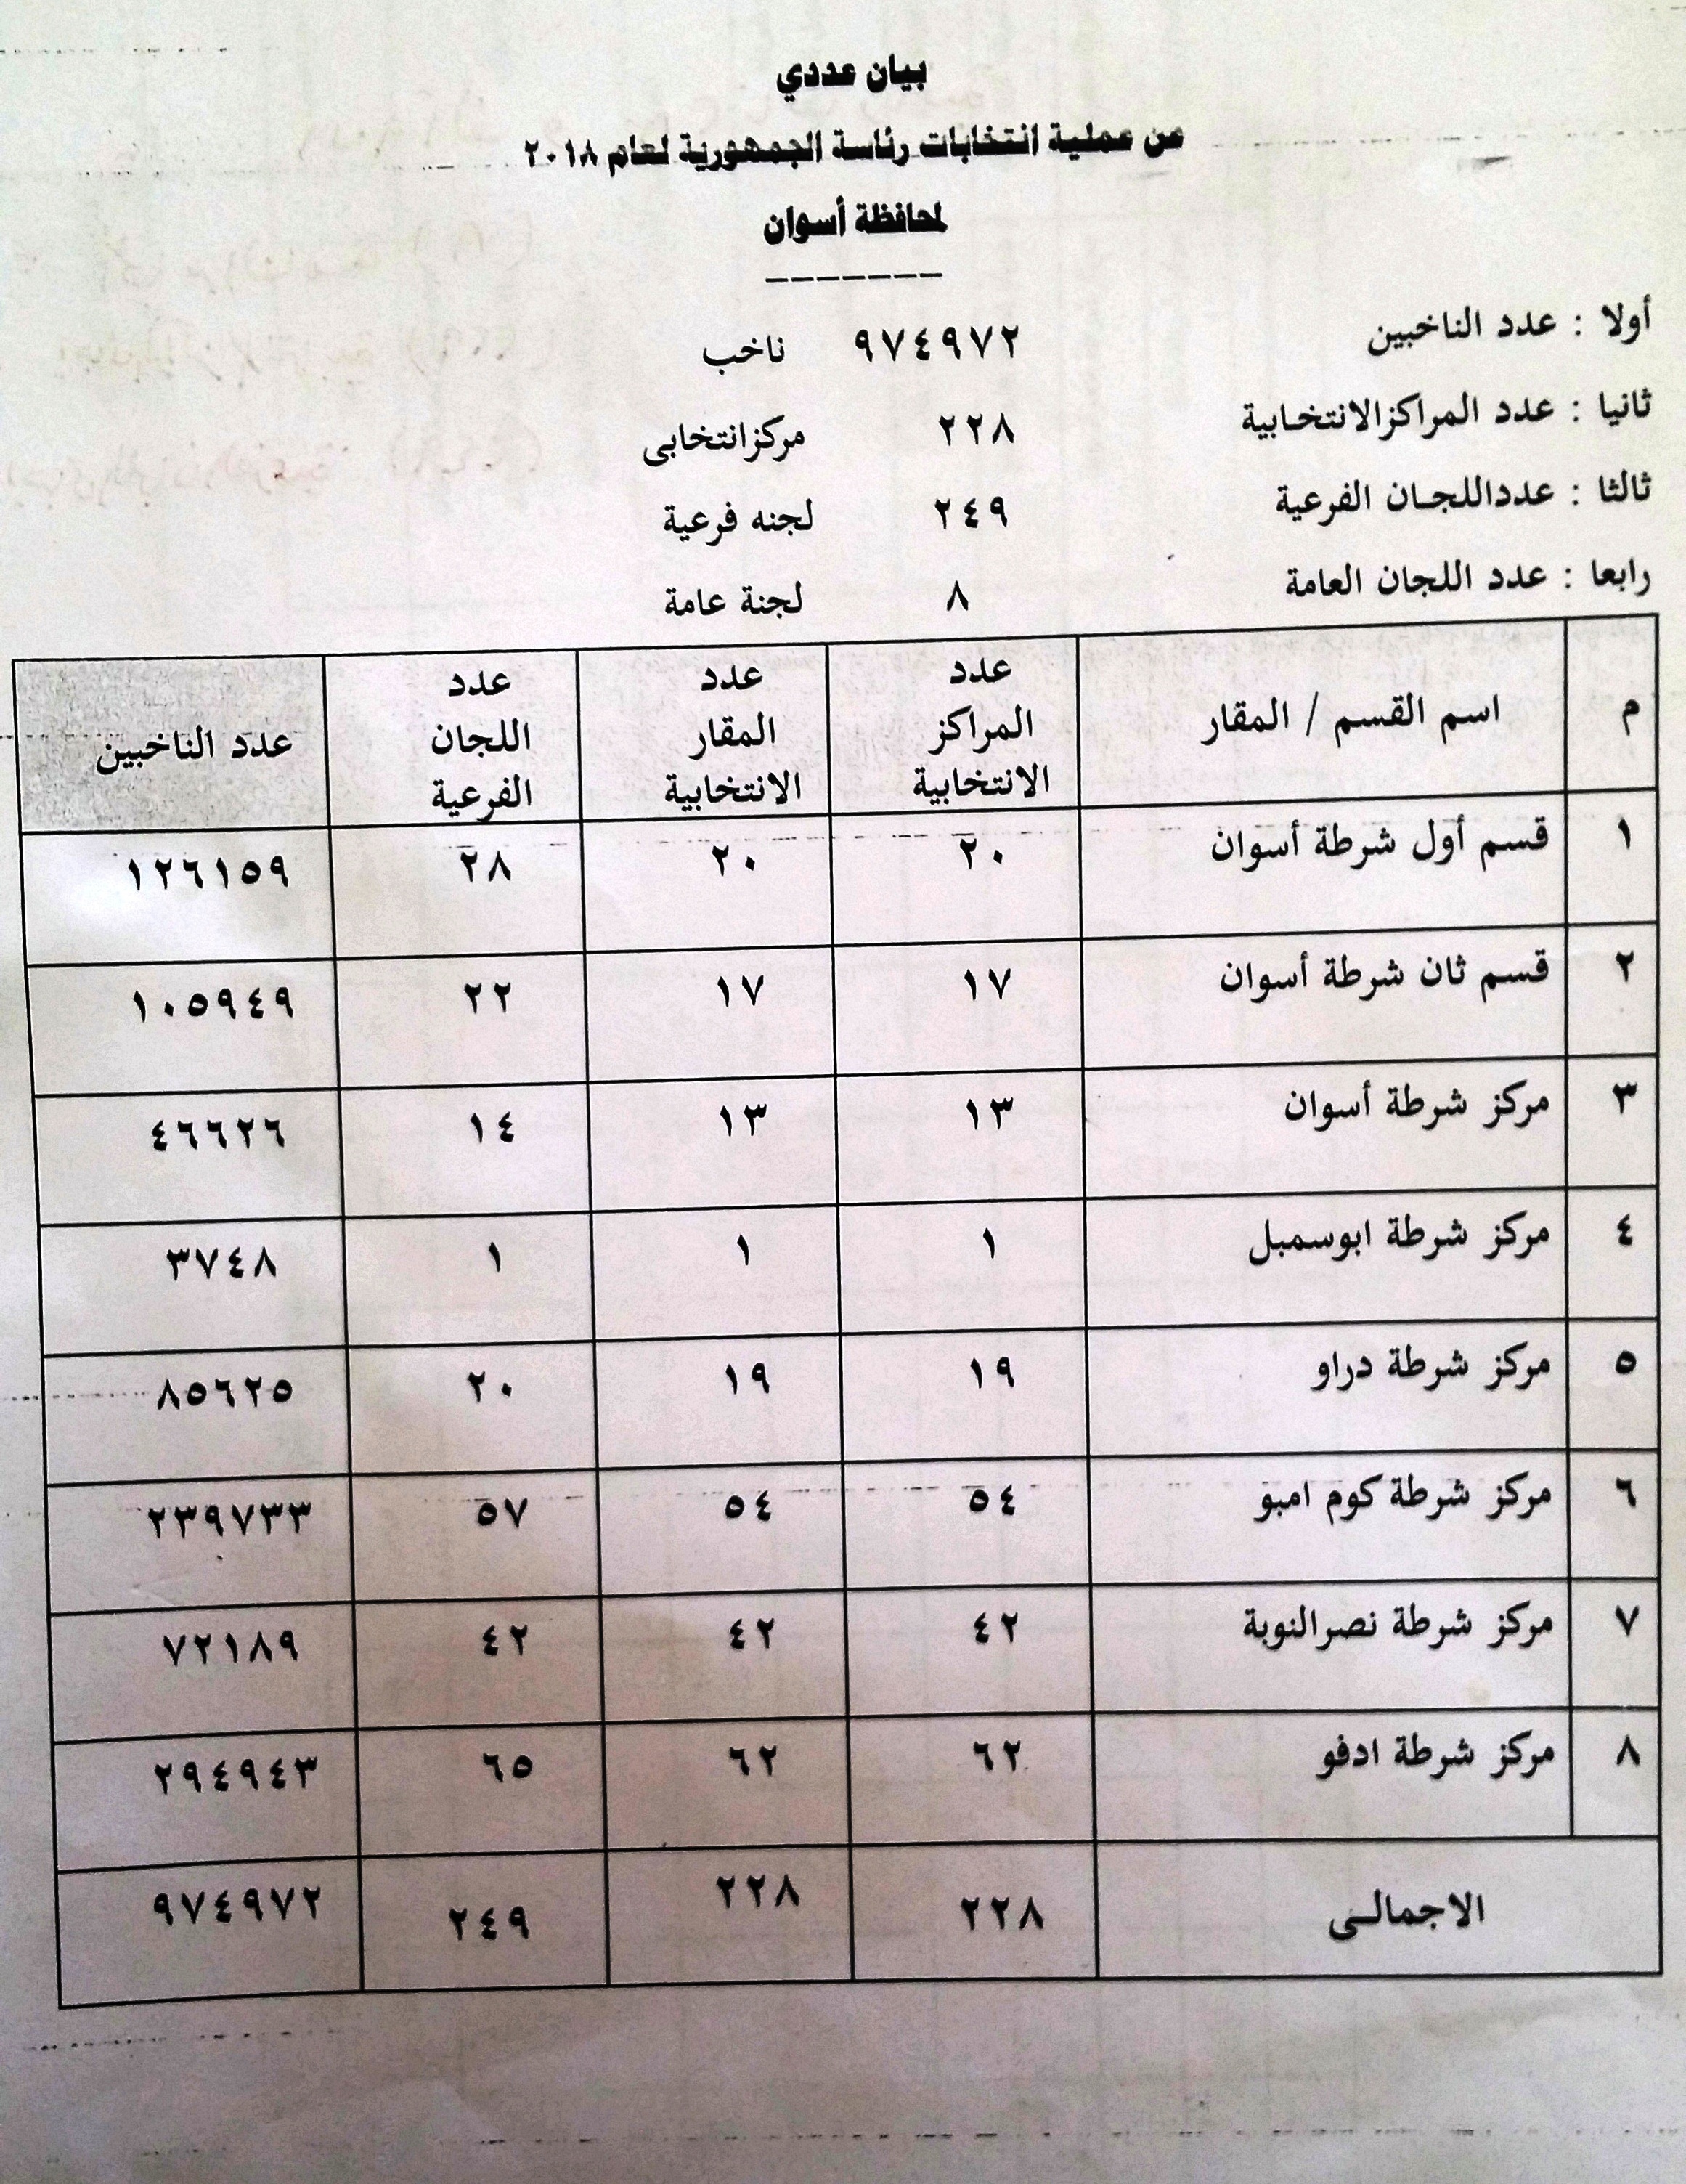 بيان عددي
عن عملية انتخابات رئاسة الجمهورية لعام ٢٠١٨
لمحافظة أسوان
أولا : عدد الناخبين ٩٧٤٩٧٢ ناخب
ثانيا : عدد المراكزالانتخابية ٢٢٨ مركزانتخابى
ثالثا : عدداللجان الفرعية ٢٤٩ لجنه فرعية
رابعا : عدد اللجان العامة ٨ لجنة عامة
م اسم القسم / المقار عدد المراكز الانتخابية عدد المقار الانتخابية عدد اللجان الفرعية عدد الناخبين
١ قسم أول شرطة أسوان ٢٠ ٢٠ ٢٨ ١٢٦١٥٩
٢ قسم ثان شرطة أسوان ١٧ ١٧ ٢٢ ١٠٥٩٤٩
٣ مركز شرطة أسوان ١٣ ١٣ ١٤ ٤٦٦٢٦
٤ مركز شرطة ابوسمبل ١ ١ ١ ٣٧٤٨
٥ مركز شرطة دراو ١٩ ١٩ ٢٠ ٨٥٦٢٥
٦ مركز شرطة كوم امبو ٥٤ ٥٤ ٥٧ ٢٣٩٧٣٣
٧ مركز شرطة نصرالنوبة ٤٢ ٤٢ ٤٢ ٧٢١٨٩
٨ مركز شرطة ادفو ٦٢ ٦٢ ٦٥ ٢٩٤٩٤٣
الاجمالى ٢٢٨ ٢٢٨ ٢٤٩ ٩٧٤٩٧٢